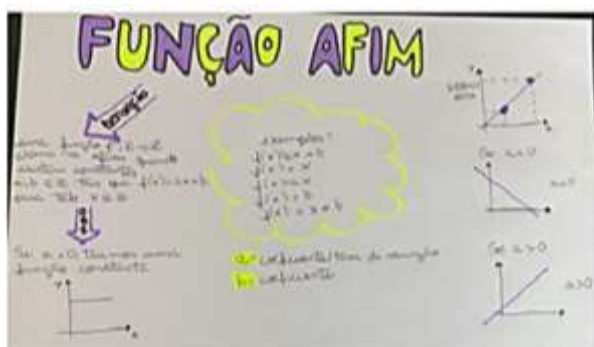 FUNÇÃO AFIM
definição
uma função f: R → R
chama-se afim quando
existem constantes
a, b ∈ R tais que f(x)=ax+b
para todo x ∈ R
Se a = 0 temos uma
função constante
y
x
exemplos:
f(x)=ax+b
f(x)= x
f(x)=ax
f(x)= b
f(x)= x+b
a= coeficiente/taxa de variação
b= coeficiente
y
x
Se a<0
Se a>0
a>0